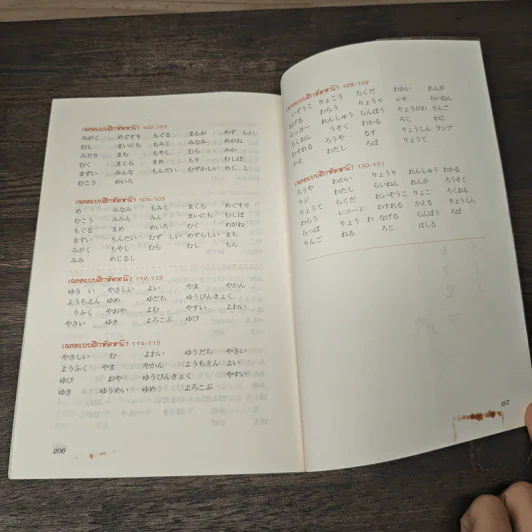 เฉลยแบบฝึกหัดหน้า 102-103
みがく めぐすり もぐる まんが めず しい
むし まいにち もみじ みなみ めがね
みがり まち もやし むら みかん
むく まくら まめ もり むしば
まずい みんな もんだい むずかしい めじ し
むこう めいろ
เฉลยแบบฝึกหัดหน้า 104-105
め みなみ もみじ まくら めぐすり
むこう みかん みん まいにち むしば
もぐる まめ めいろ むく めがね
まずい もんだい むず しい めずらしい まち
みがく もやし むら むし もん
みみ めじるし
เฉลยแบบฝึกหัดหน้า 112-113
ゆう い やさしい よい やま やかん
ようちえん ゆめ ゆだち ゆうびんきょく
うふく やおや よむ やすい よわい
やさい ゆき よろこぶ ゆび
เฉลยแบบฝึกหัดหน้า 114-115
やさしい む よわい ゆうだち やさい
ようふく やま やかん ようちえん よい
ゆび おや ゆうびんきょく やすい
ゆき ゆうめい ゆめ よろこぶ
206
เฉลยแบบฝึกหัดหน้า 128-129
いぞうこ りょこう らくだ わかい れんが
なげる わらう りょうり いき らいねん
ンガー れんしゅう らんぼう りょうがわ りんご
らくおん うそく わかる ろじ わに
わすれる ろうや るす りょうしん ランプ
かえ わたし ろば りょうて
เฉลยแบบฝึกหัดหน้า 130-131
ろうや わかい りょうり れんしゅう わかる
ラジ わたし らいねん れんが ろうそく
りょうて らくだ れいぞうこ りょこ ろくおん
わらう レコード わすれる かえる りょうしん
らっぱ りょう わ なげる らんぼう ろば
りんご ねる ろじ はしる
207